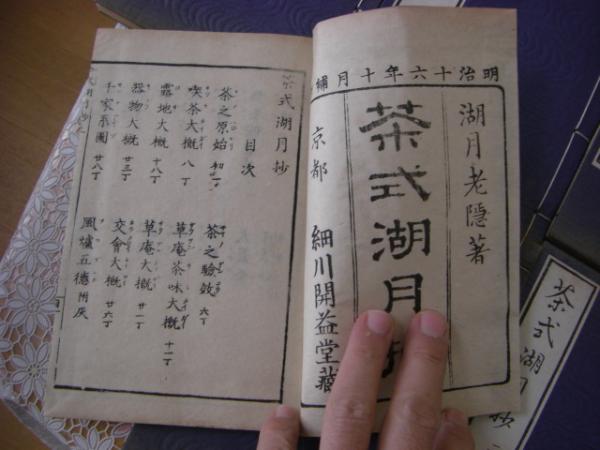 明治十六年十月補
湖月老隱著
茶式湖月
京都 細川開益堂藏
茶式湖月抄
目次
茶之原始
茶之驗效 六丁
喫茶大概 八丁
草庵茶味大概 十一丁
露地大概 十八丁
草庵大概 廿一丁
器物大概 廿三丁
交會大概 廿六丁
千家系圖 廿八丁
風爐五德附灰
茶式湖月抄